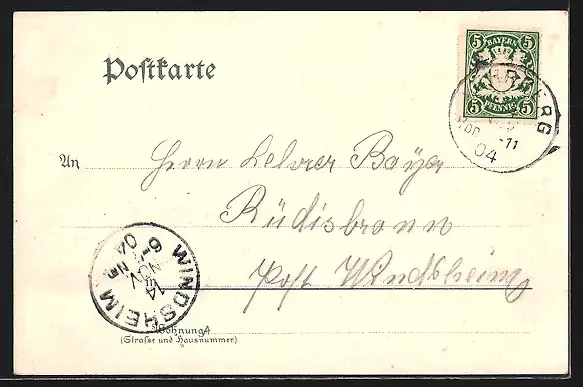 Postkarte
5 BAYERN 5
5 PFENNIG 5
BERG
VOR
-11
04
An
Herrn Lehrer Bayer
Rüdisbronn
Post Windsheim
WINDSHEIM
14 NOV
6-7 N
04
Wohnung
(Straße und Hausnummer)